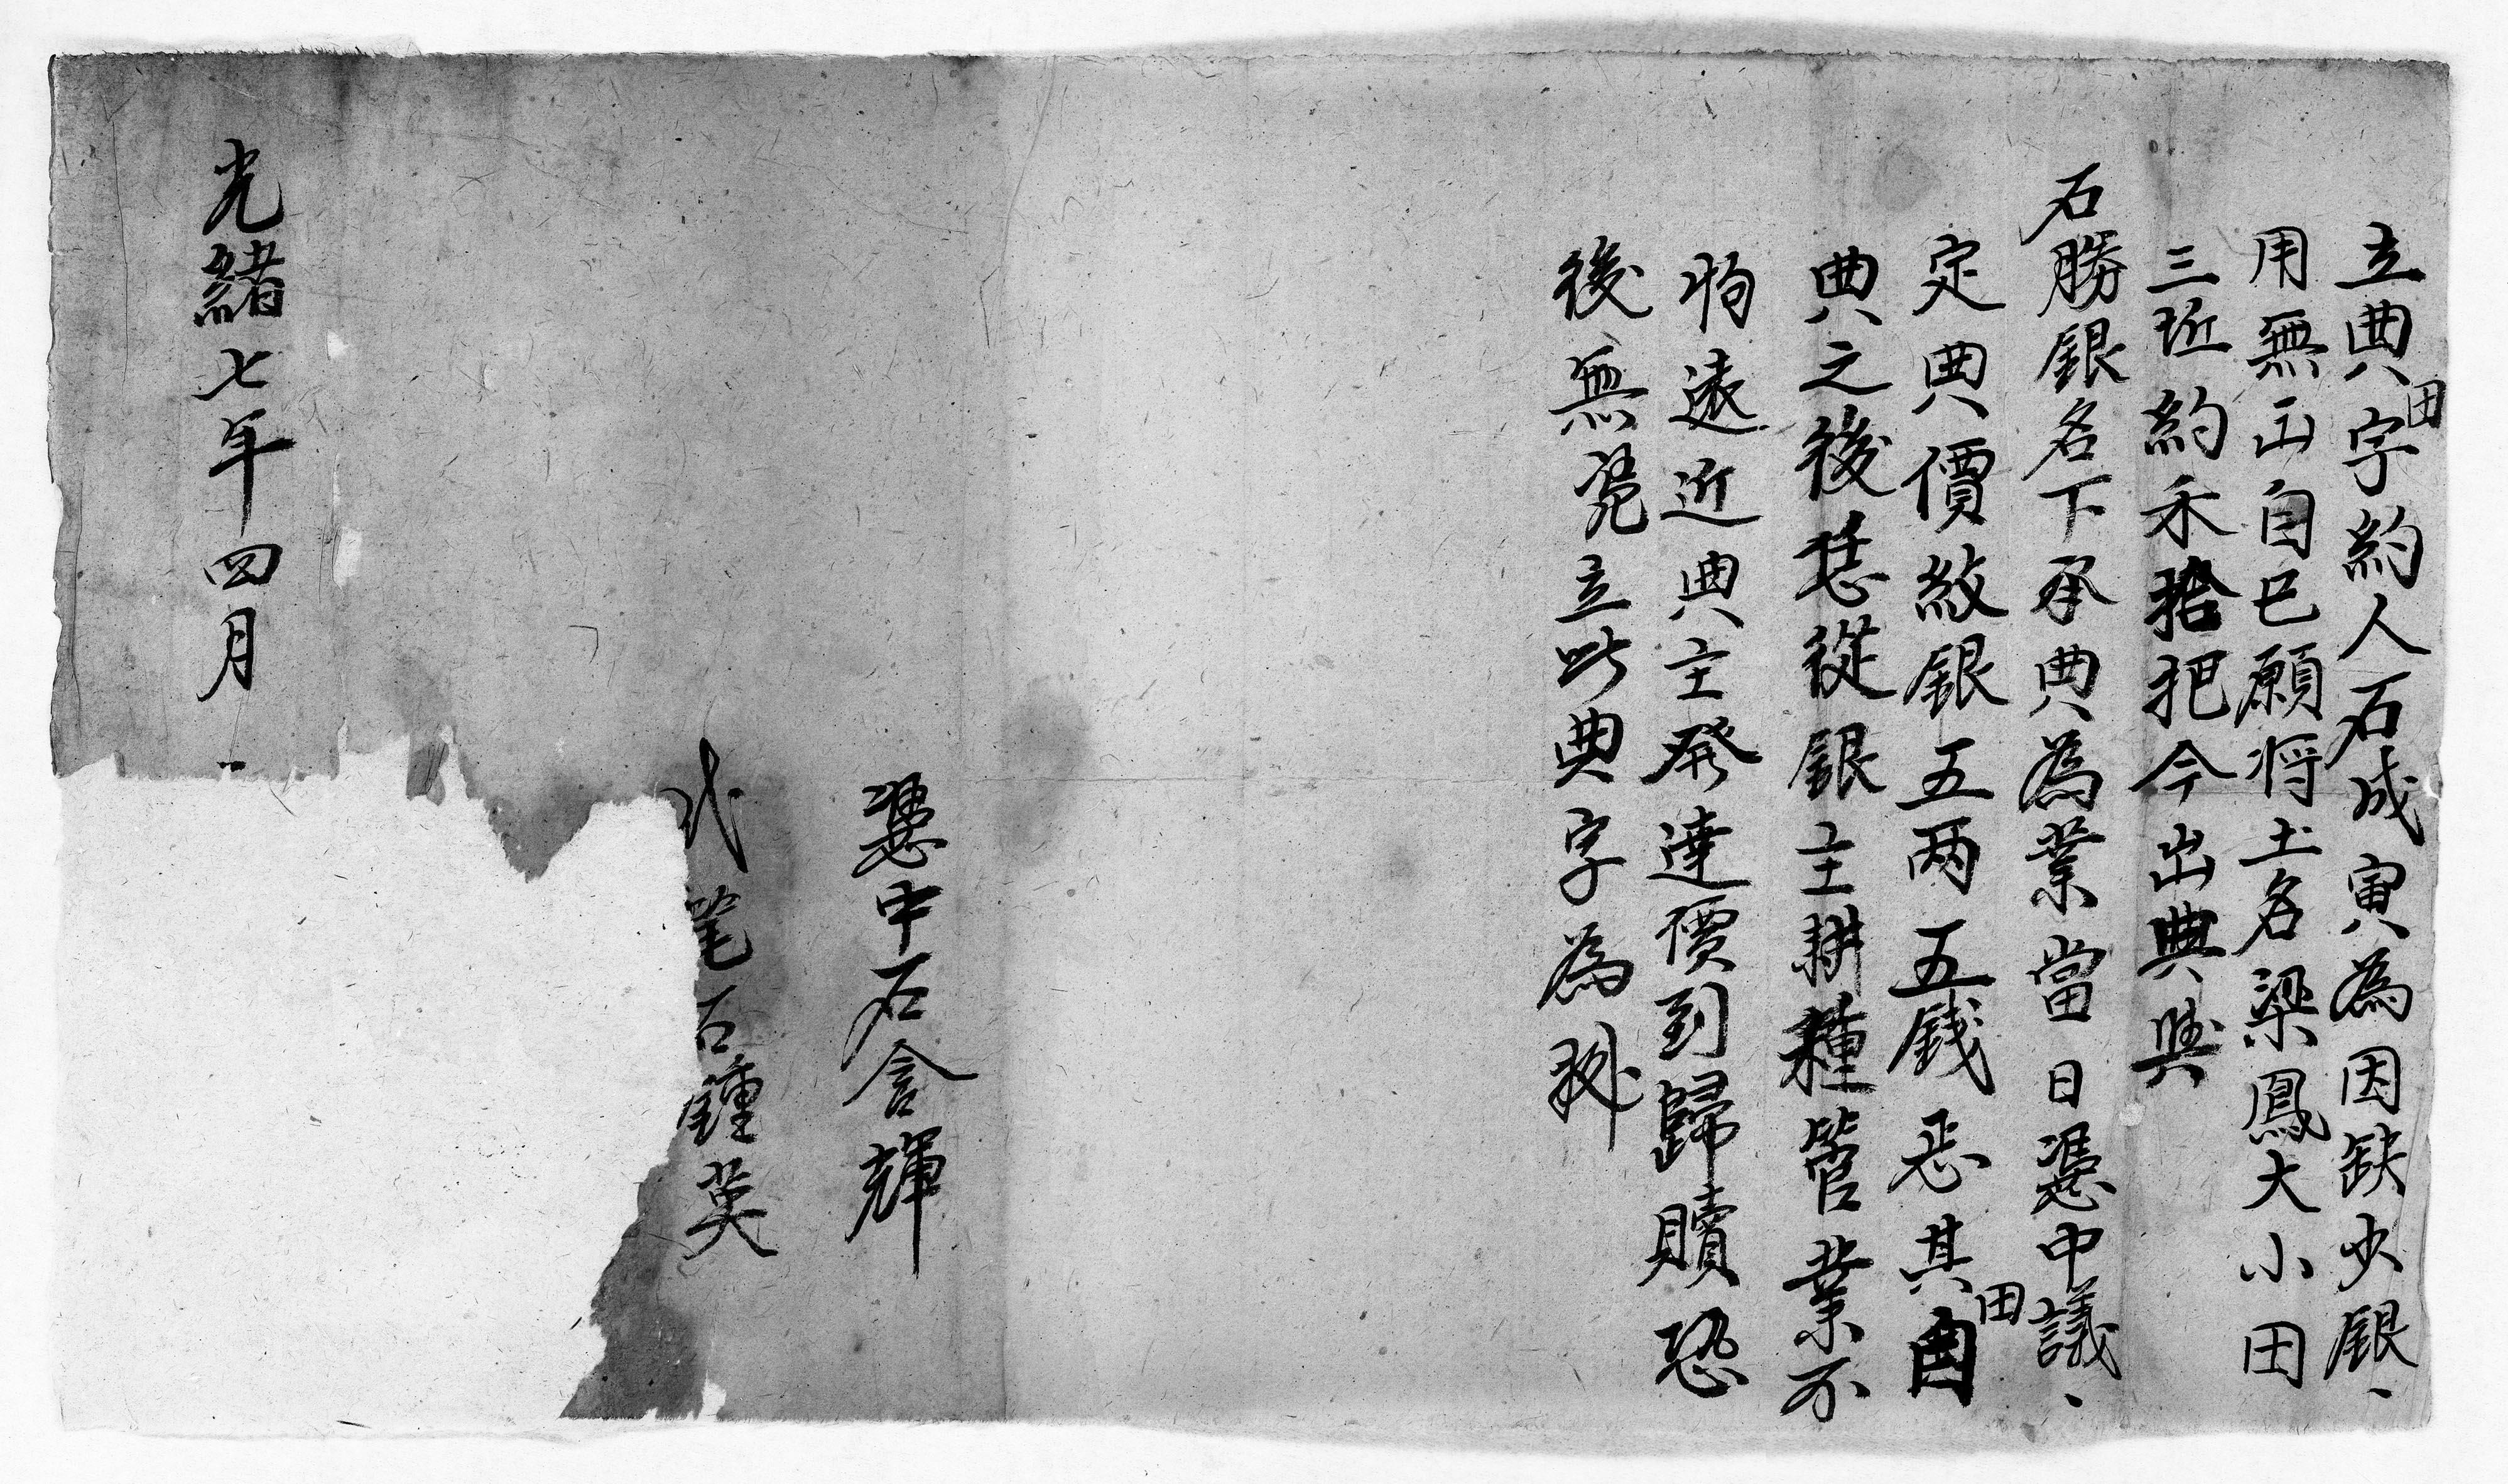 立典田字約人石成寅為因缺少銀、
用無出自己願将土名梁鳳大小田
三坵約禾拾把今出典與
石勝銀名下承典為業當日憑中議、
定典價紋銀五两五錢忎其田自
典之後恁從銀主耕種管業不
拘遠近典主發達價到歸贖恐
後無凴立此典字為㨿
憑中石含輝
代笔石鍾英
光緒七年四月